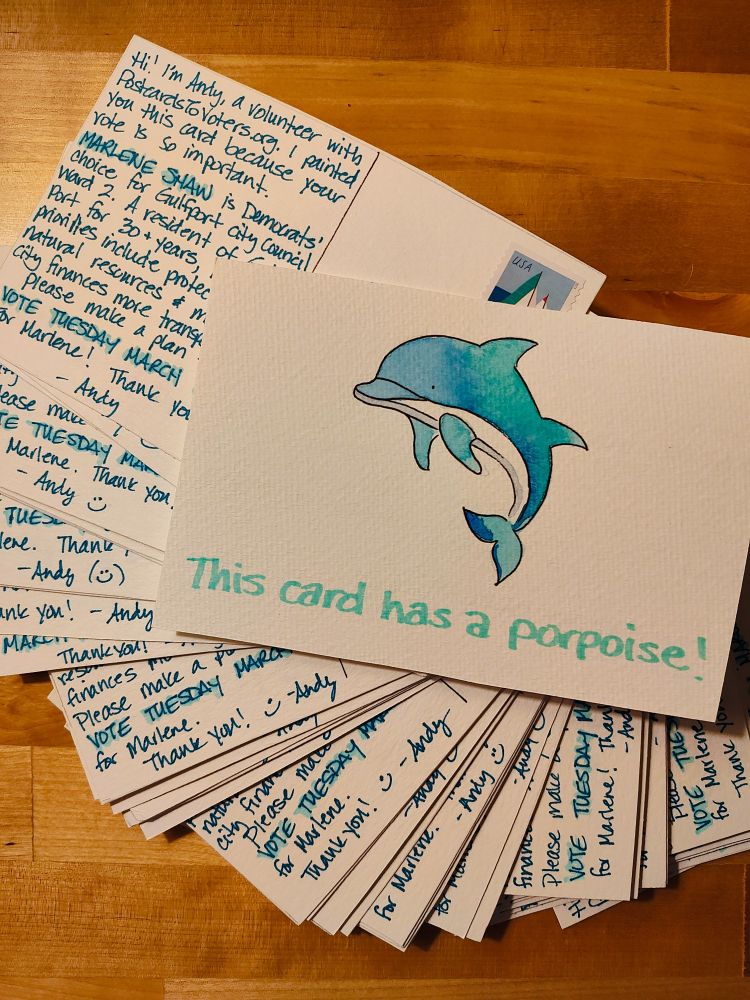 Hi! I'm Andy, a volunteer with
PostcardsToVoters.org. I painted
you this card because your
vote is so important.
MARLENE SHAW is Democrats'
choice for Gulfport city council
ward 2. A resident of
Port for 30+ years,
priorities include protec
natural resources & m
city finances more transp
Please make a plan
VOTE TUESDAY MARCH
for Marlene! Thank you
- Andy
USA
This card has a porpoise!
ease make
TE TUESDAY MAR
Marlene. Thank you.
- Andy ☺
TUES
lene. Thank
- Andy (☺)
ank you! - Andy
MARCH
Thank you!
finances mo
Please make a p
VOTE TUESDAY MARCH
for Marlene.
Thank you! ☺ - Andy
natur
city finan
Please make
VOTE TUESDAY MAR
for Marlene.
Thank you! ☺ - Andy
- Andy
for Marlene. - Andy ☺
- Andy
finances
Please make a
VOTE TUES
for Marlene! Than
- And
Please
VOTE TUE
for Marlene
- Thank